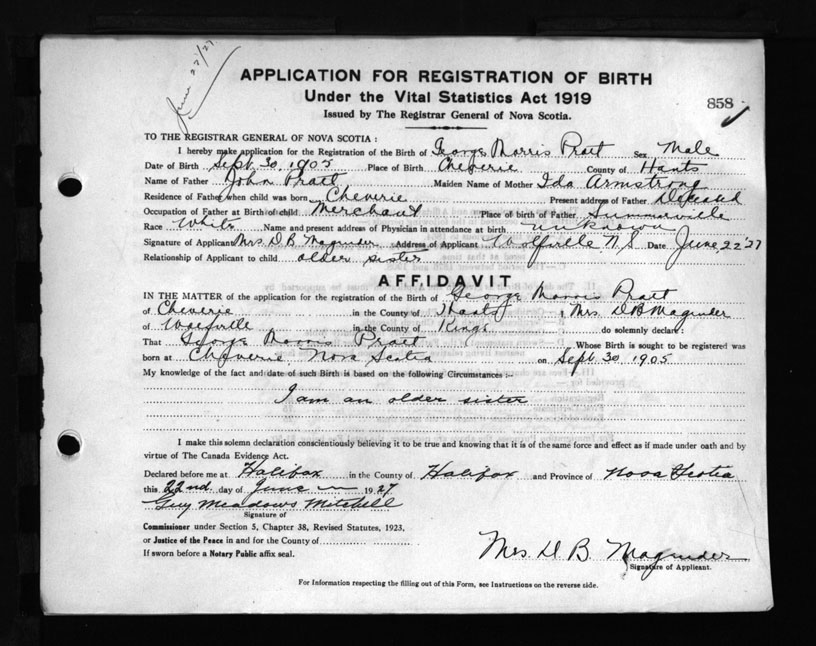 June 22/27
APPLICATION FOR REGISTRATION OF BIRTH
Under the Vital Statistics Act 1919
858
Issued by The Registrar General of Nova Scotia.
TO THE REGISTRAR GENERAL OF NOVA SCOTIA :
I hereby make application for the Registration of the Birth of George Morris Pratt Sex Male
Date of Birth Sept. 30, 1905 Place of Birth Cheverie County of Hants
Name of Father John Pratt Maiden Name of Mother Ida Armstrong
Residence of Father when child was born Cheverie Present address of Father Deceased
Occupation of Father at Birth of child Merchant Place of birth of Father Summerville
Race White Name and present address of Physician in attendance at birth unknown
Signature of Applicant Mrs. D. B. Magnider Address of Applicant Wolfville N.S. Date June 22 '27
Relationship of Applicant to child older sister
AFFIDAVIT
IN THE MATTER of the application for the registration of the Birth of George Morris Pratt
of Cheverie in the County of Hants I, Mrs. D B Magnider
of Wolfville in the County of Kings do solemnly declare :
That George Morris Pratt Whose Birth is sought to be registered was
born at Cheverie, Nova Scotia on Sept. 30 1905
My knowledge of the fact and date of such Birth is based on the following Circumstances :—
I am an older sister
I make this solemn declaration conscientiously believing it to be true and knowing that it is of the same force and effect as if made under oath and by
virtue of The Canada Evidence Act.
Declared before me at Halifax in the County of Halifax and Province of Nova Scotia
this 22nd day of June 1927
Guy Meadows Mitchell
Signature of
Commissioner under Section 5, Chapter 38, Revised Statutes, 1923,
or Justice of the Peace in and for the County of
If sworn before a Notary Public affix seal.
Mrs. D. B. Magnider
Signature of Applicant.
For Information respecting the filling out of this Form, see Instructions on the reverse side.